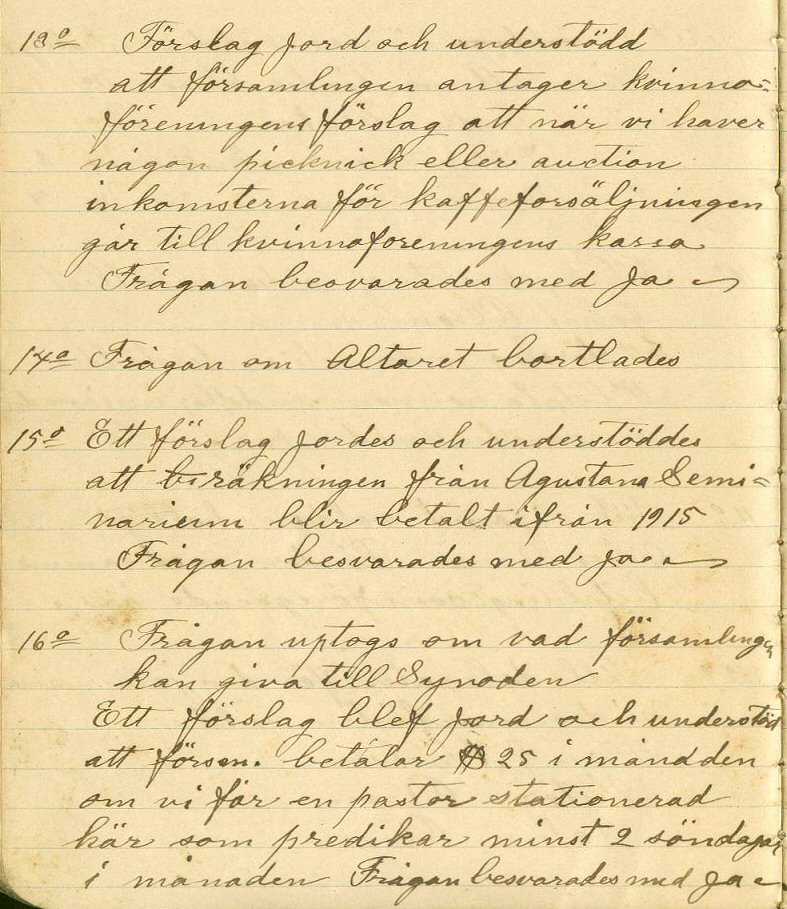 13º Förslag jord och understödd
att församlingen antager kvinno=
föreningens förslag att när vi haver
någon picknick eller auction
inkomsterna för kaffeforsäljningen
går till kvinnoforeningens kassa
Frågan besvarades med Ja
14º Frågan om Altaret bortlades
15º Ett förslag jordes och understöddes
att beräkningen från Agustana Semi=
narium blir betalt ifrån 1915
Frågan besvarades med Ja
16º Frågan uptogs om vad församlingen
kan giva till Synoden
Ett förslag blef jord och understöd
att försm. betalar $ 25 i måndden
om vi får en pastor stationerad
här som predikar minst 2 söndagar
i månaden Frågan besvarades med Ja